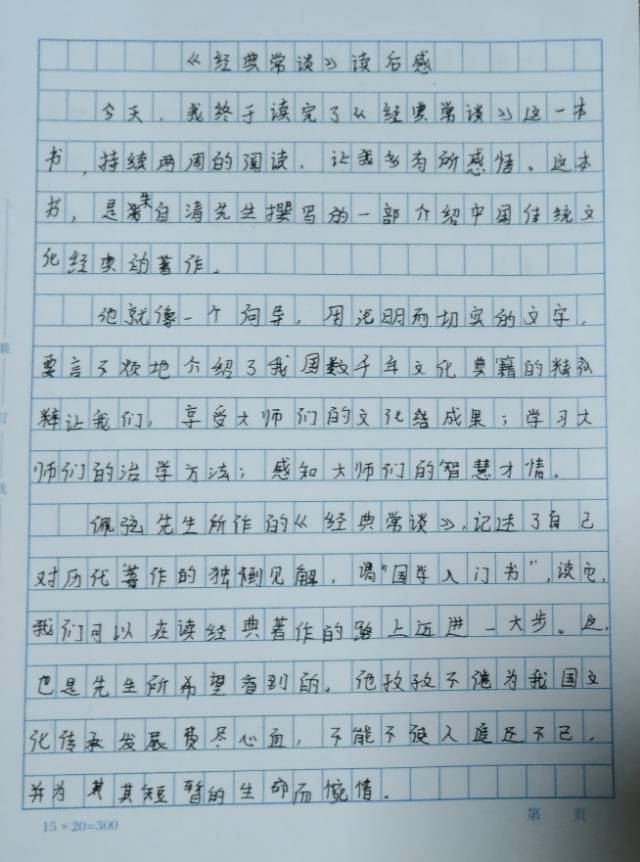 《经典常谈》读后感
今天，我终于读完了《经典常谈》这一本
书，持续两周的阅读，让我多有所感悟。这本
书，是朱自清先生撰写的一部介绍中国传统文
化经典的著作。
他就像一个向导，用浅明而切实的文字，
要言不烦地介绍了我国数千年文化典籍的精
粹让我们，享受大师们的文化成果；学习大
师们的治学方法；感知大师们的智慧才情。
佩弦先生所作的《经典常谈》，记述了自己
对历代著作的独到见解，谓“国学入门书”，读它，
我们可以在读经典著作的路上迈进一大步。这，
也是先生所希望看到的。他孜孜不倦为我国文
化传承发展费尽心血，不能不使人
并为其短暂的生命而惋惜。
15×20=300
第 页
装
订
线